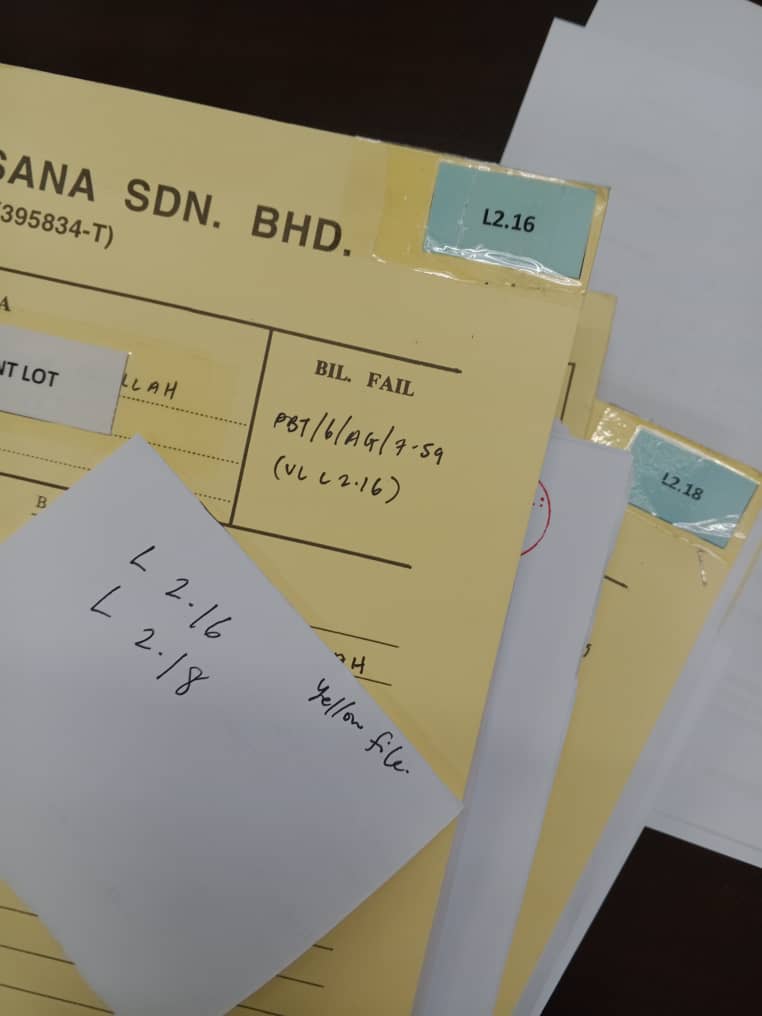 SANA SDN. BHD.
(395834-T)
L2.16
A
NT LOT
LLAH
BIL. FAIL
PBT/6/AG/7-59
(VL L2.16)
B
L2.18
L 2.16
L 2.18
AH
Yellow file.